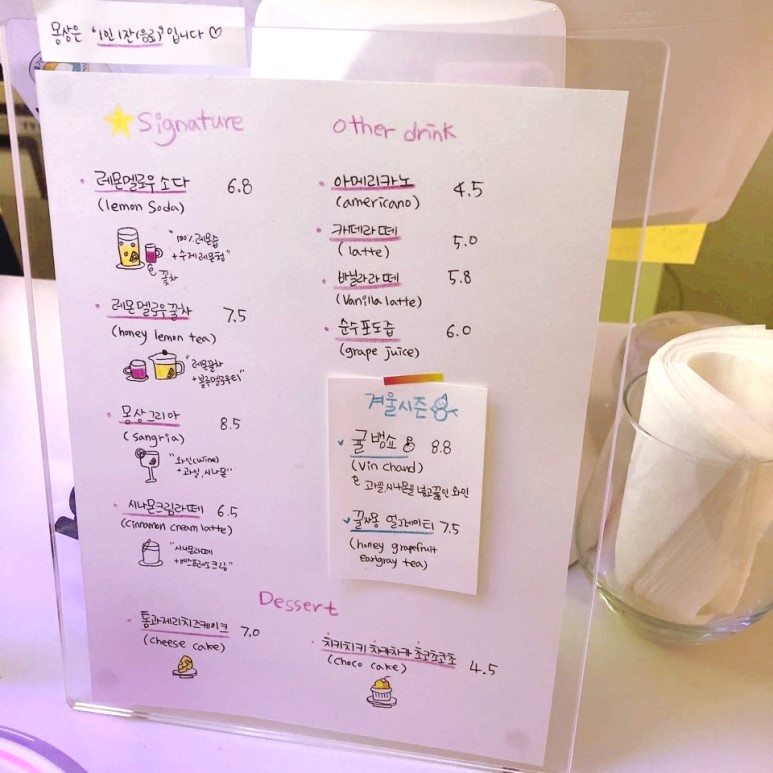 몽상은 "1인 1잔(음료)" 입니다 ♡
Signature
레몬멜로우소다 6.8
(lemon soda)
"100% 레몬즙
+수제레몬청"
꿀차
레몬멜로우꿀차 7.5
(honey lemon tea)
"레몬꿀차
+블루멜로우티"
몽상그리아 8.5
(sangria)
"와인(wine)
+과일,시나몬"
시나몬크림라떼 6.5
(cinnamon cream latte)
"시나몬라떼
+에스프레소크림"
other drink
아메리카노 4.5
(americano)
카페라떼 5.0
(latte)
바닐라라떼 5.8
(Vanilla latte)
순수포도즙 6.0
(grape juice)
겨울시즌
귤 뱅쇼 8.8
(Vin chaud)
과일,시나몬을 넣고 끓인 와인
꿀자몽 얼그레이티 7.5
(honey grapefruit
earlgray tea)
Dessert
톰과제리치즈케이크 7.0
(cheese cake)
치키치키 차카차카 초코초코초 4.5
(choco cake)